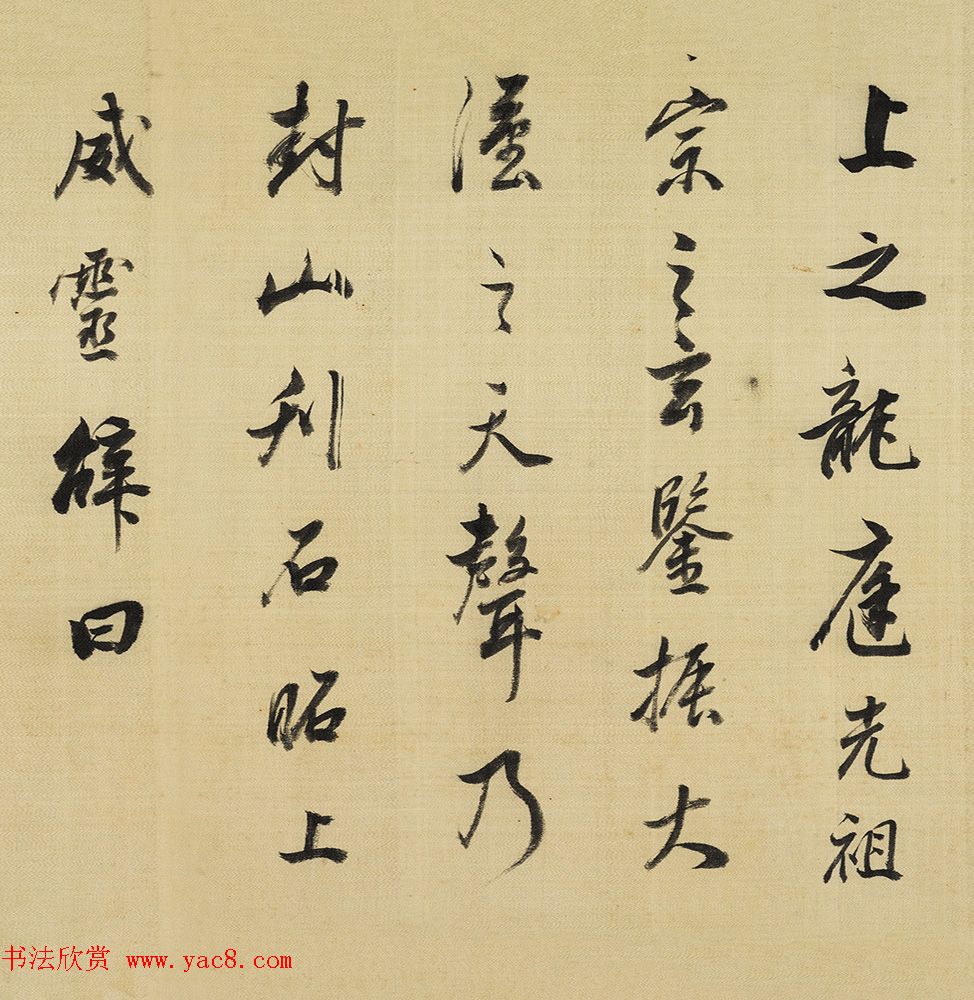 上之龍庭光祖
宗之玄鑒振大
漢之天聲乃
封山刋石昭上
威靈辭曰
书法欣赏 www.yac8.com